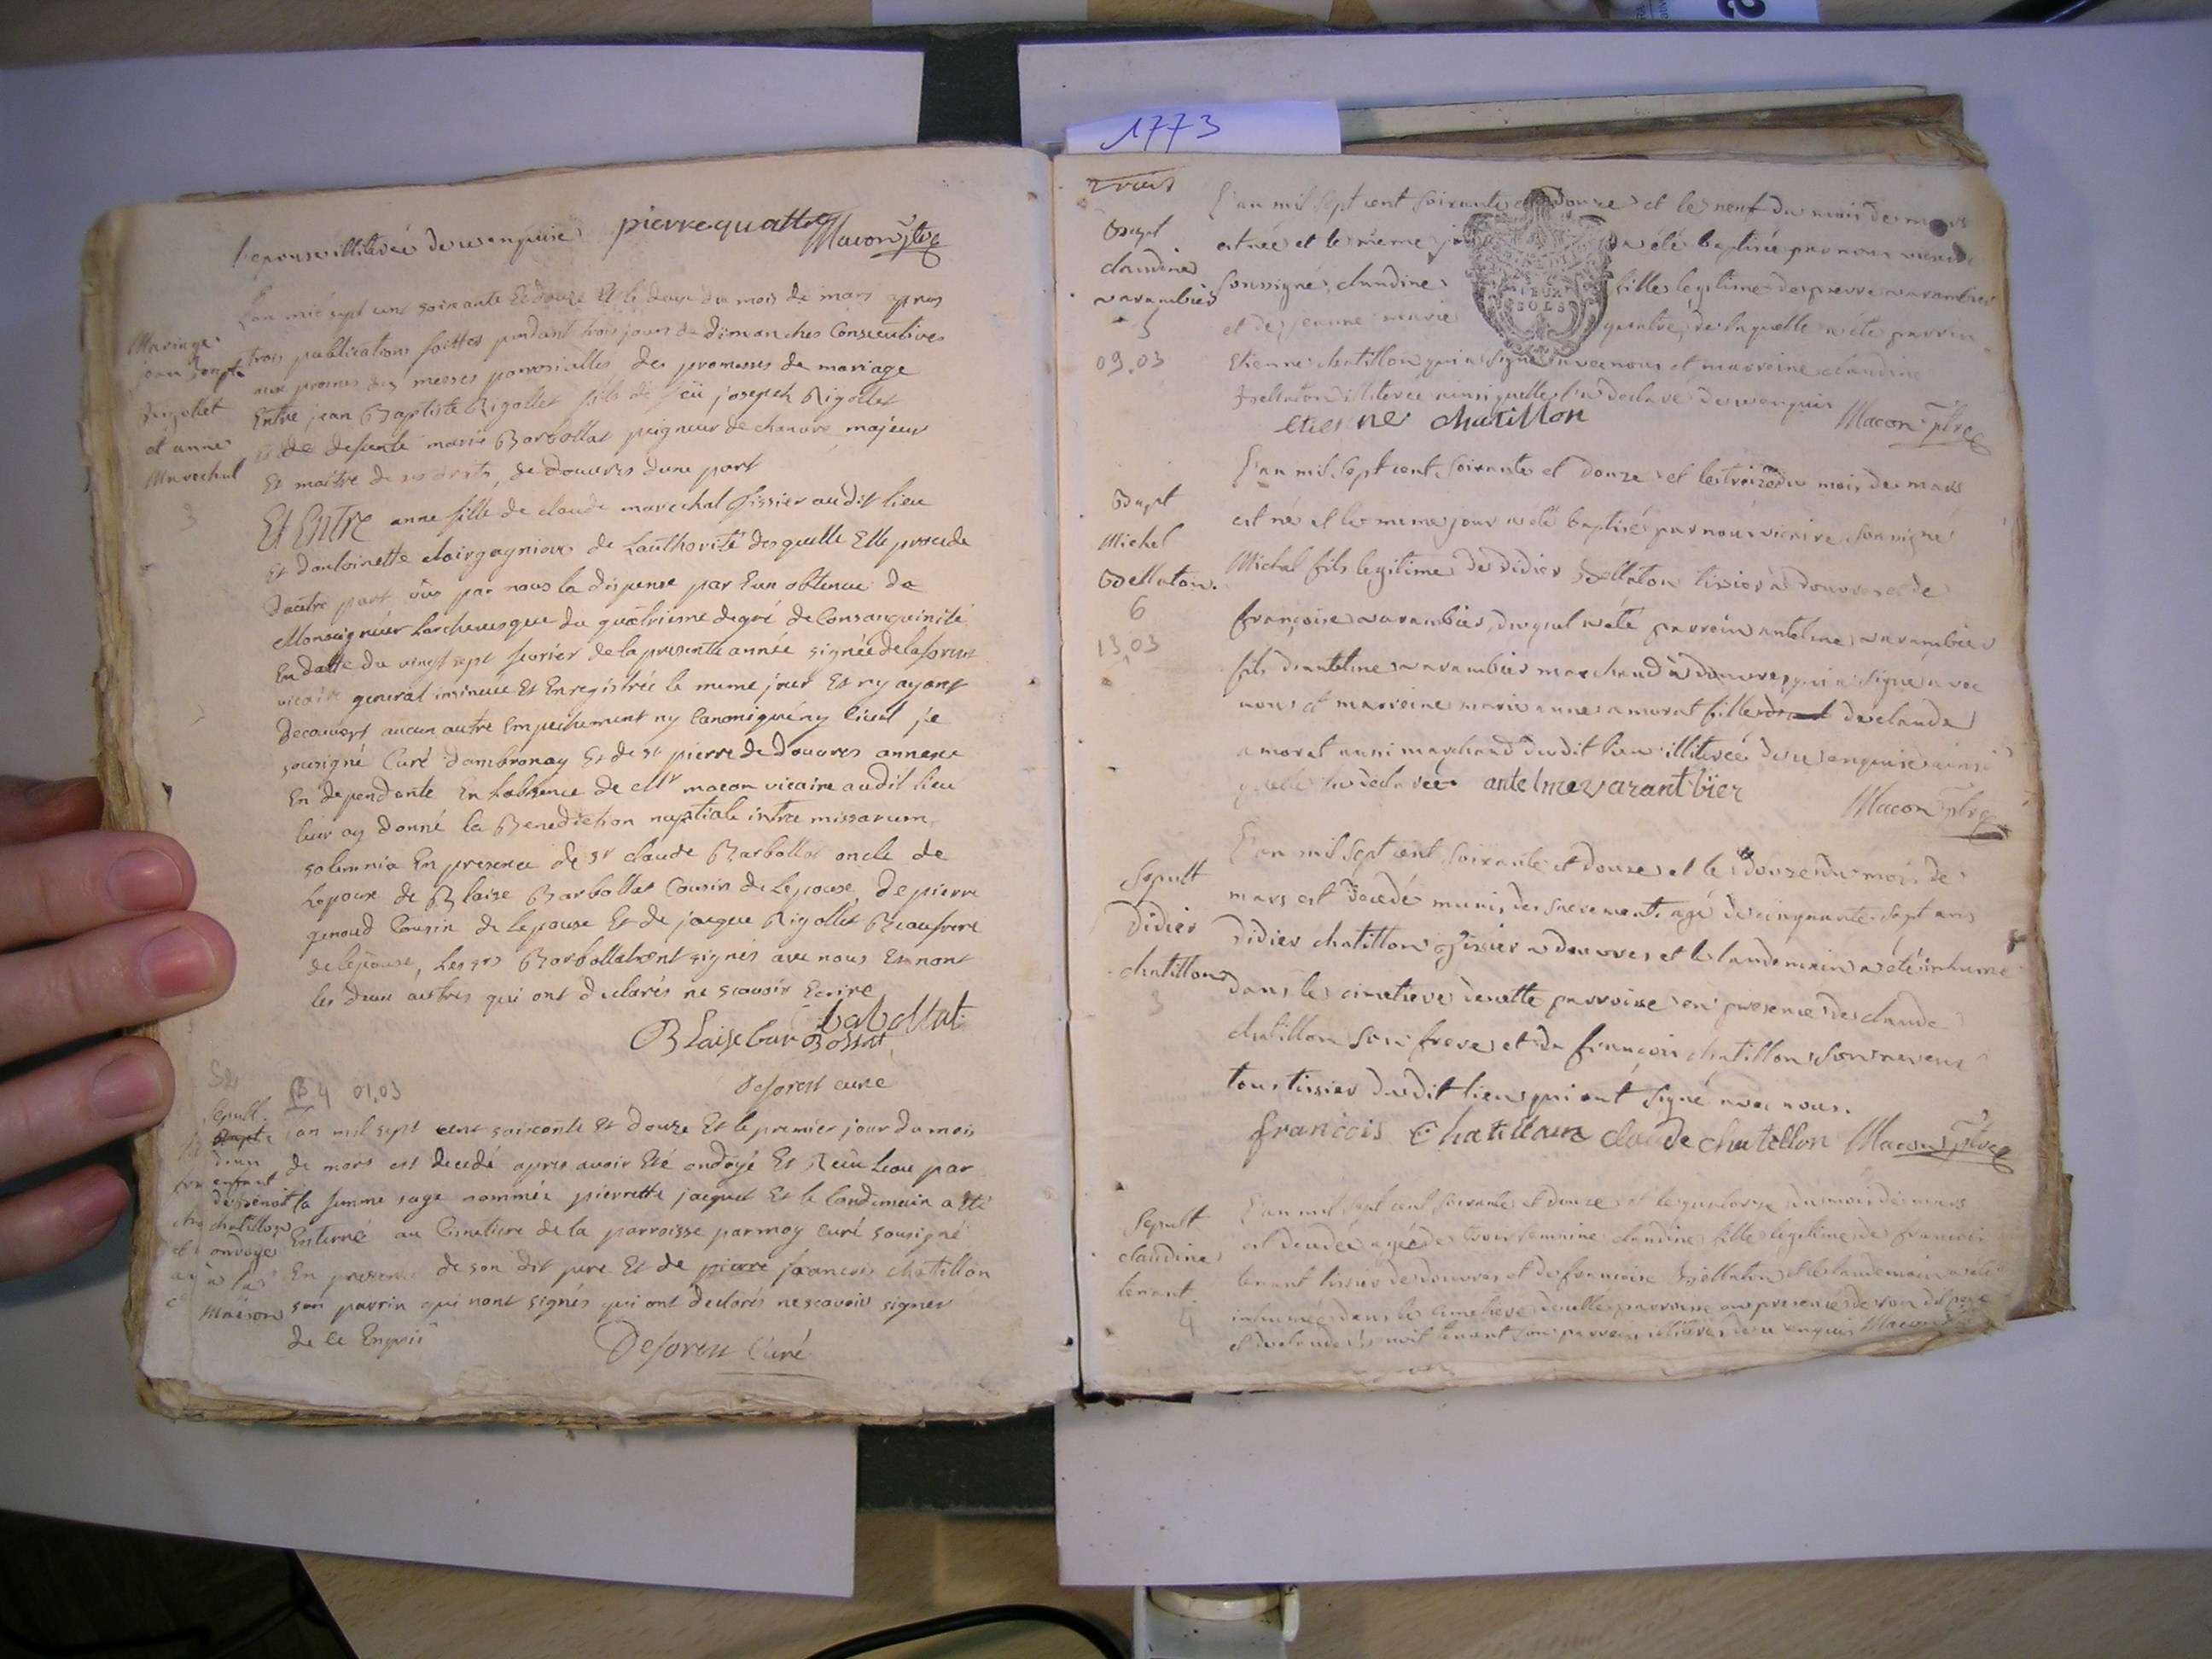 1773
l'epouse illiterée de ce enquise pierre quattre Macon ptre
Mariage
jean bapte
Rigollet
et anne
Marechal
3
L'an mil sept cent soixante Et douze Et le douze du mois de mars apres
trois publications faittes pendant trois jours de dimanches Consecutives
aux prones des messes parroissialles des promesses de mariage
Entre jean Baptiste Rigollet fils de feü joseph Rigollet
et de defunte marie Barbollat peigneur de chanvre majeur
Et maitre de ses droits, de douvres dune part
Et Entre anne fille de claude marechal tissier audit lieu
Et dantoinette de Lauthorité desquelle Elle procede
dautre part vûe par nous la dispense par Eux obtenue de
Monseigneur Larchevesque du quatrieme degré de Consanguinité
En datte du vingt sept fevrier de la presente année signée delaforest
vicaire general insinuée Et Enregistrée le meme jour Et ny ayant
decouvert aucun autre Empechement ny Canonique ny Civil je
sousigné Curé dambronay Et de st pierre de Douvres annexe
En dependante En Labsence de Mr macon vicaire audit lieu
leur ay donné la Benediction nuptiale intra missarum
solemnia En presence de sr claude Barbollat oncle de
Lepoux de Blaise Barbollat Cousin de Lepouse, de pierre
genoud Cousin de Lepouse Et de jacque Rigollet Beaufrere
de lepouse, Les srs Barbollat ont signés avec nous Et non
les deux autres qui ont declarés ne scavoir Ecrire
Blaise barbollat barbollat
Deforest curé
B 4 01,03
Sepult.
dun
enfant
de benoit
chatillon
ondoyé
a la
Maison
L'an mil sept cent soixante Et douze Et le premier jour du mois
de mars est decedé apres avoir Eté ondoyé Et reçu Leau par
la femme sage nommée pierrette jacquet Et le landemain a Eté
Enterré au Cimetiere de la parroisse par moy curé sousigné
En presence de son dit pere Et de pierre francois chatillon
son parrin qui nont signés qui ont declarés ne scavoir signer
de ce Enquis
Deforest Curé
Bapt
claudine
varambier
5
09.03
L'an mil sept cent soixante et douze et le neuf du mois de mars
est née et le meme a été baptisée par nous vicaire
soussigné, claudine fille legitime de pierre varambier
et de jeanne marie quattre, de laquelle a été parrin
Etienne chatillon qui a signé avec nous et marreine claudine
Bellaton illiterée ainsi quelle l'a declaré de ce enquis
etienne chatillon Macon ptre
Bapt
Michel
Bellaton.
6
13,03
L'an mil sept cent soixante et douze et le treize du mois de mars
est né et le meme jour a été baptisé par nous vicaire soussigné
Michel fils legitime de Didier Bellaton tissier a Douvres et de
françoise varambier, duquel a été parrein antelme varambier
fils d'antelme varambier marchand a douvres qui a signé avec
nous et marreine marie anne amorat fille de claude
amorat aussi marchand dudit lieu illiterée de ce enquise ainsi
quelle l'a declarée antelme varantbier
Macon ptre
Sepult
Didier
chatillon
3
L'an mil sept cent soixante et douze et le douze du mois de
mars est decedé muni des sacrements agé de cinquante sept ans
Didier chatillon tissier a douvres et le landemain a été inhumé
dans le cimetiere de cette parroisse en presence de claude
chatillon son frere et de françois chatillon son neveu
tous tissier dudit lieu qui ont signé avec nous.
francois Chatillon claude chatellon Macon ptre
Sepult
claudine
tenant
4
L'an mil sept cent soixante et douze et le quatorze du mois de mars
est decedée agée de trois semaine claudine fille legitime de francois
tenant tissier de douvres et de francoise Bellaton et le landemain a été
inhumée dans le cimetiere de cette parroisse en presence de son dit pere
et de claude benoit tenant son parrein illiterés de ce enquis Macon ptre